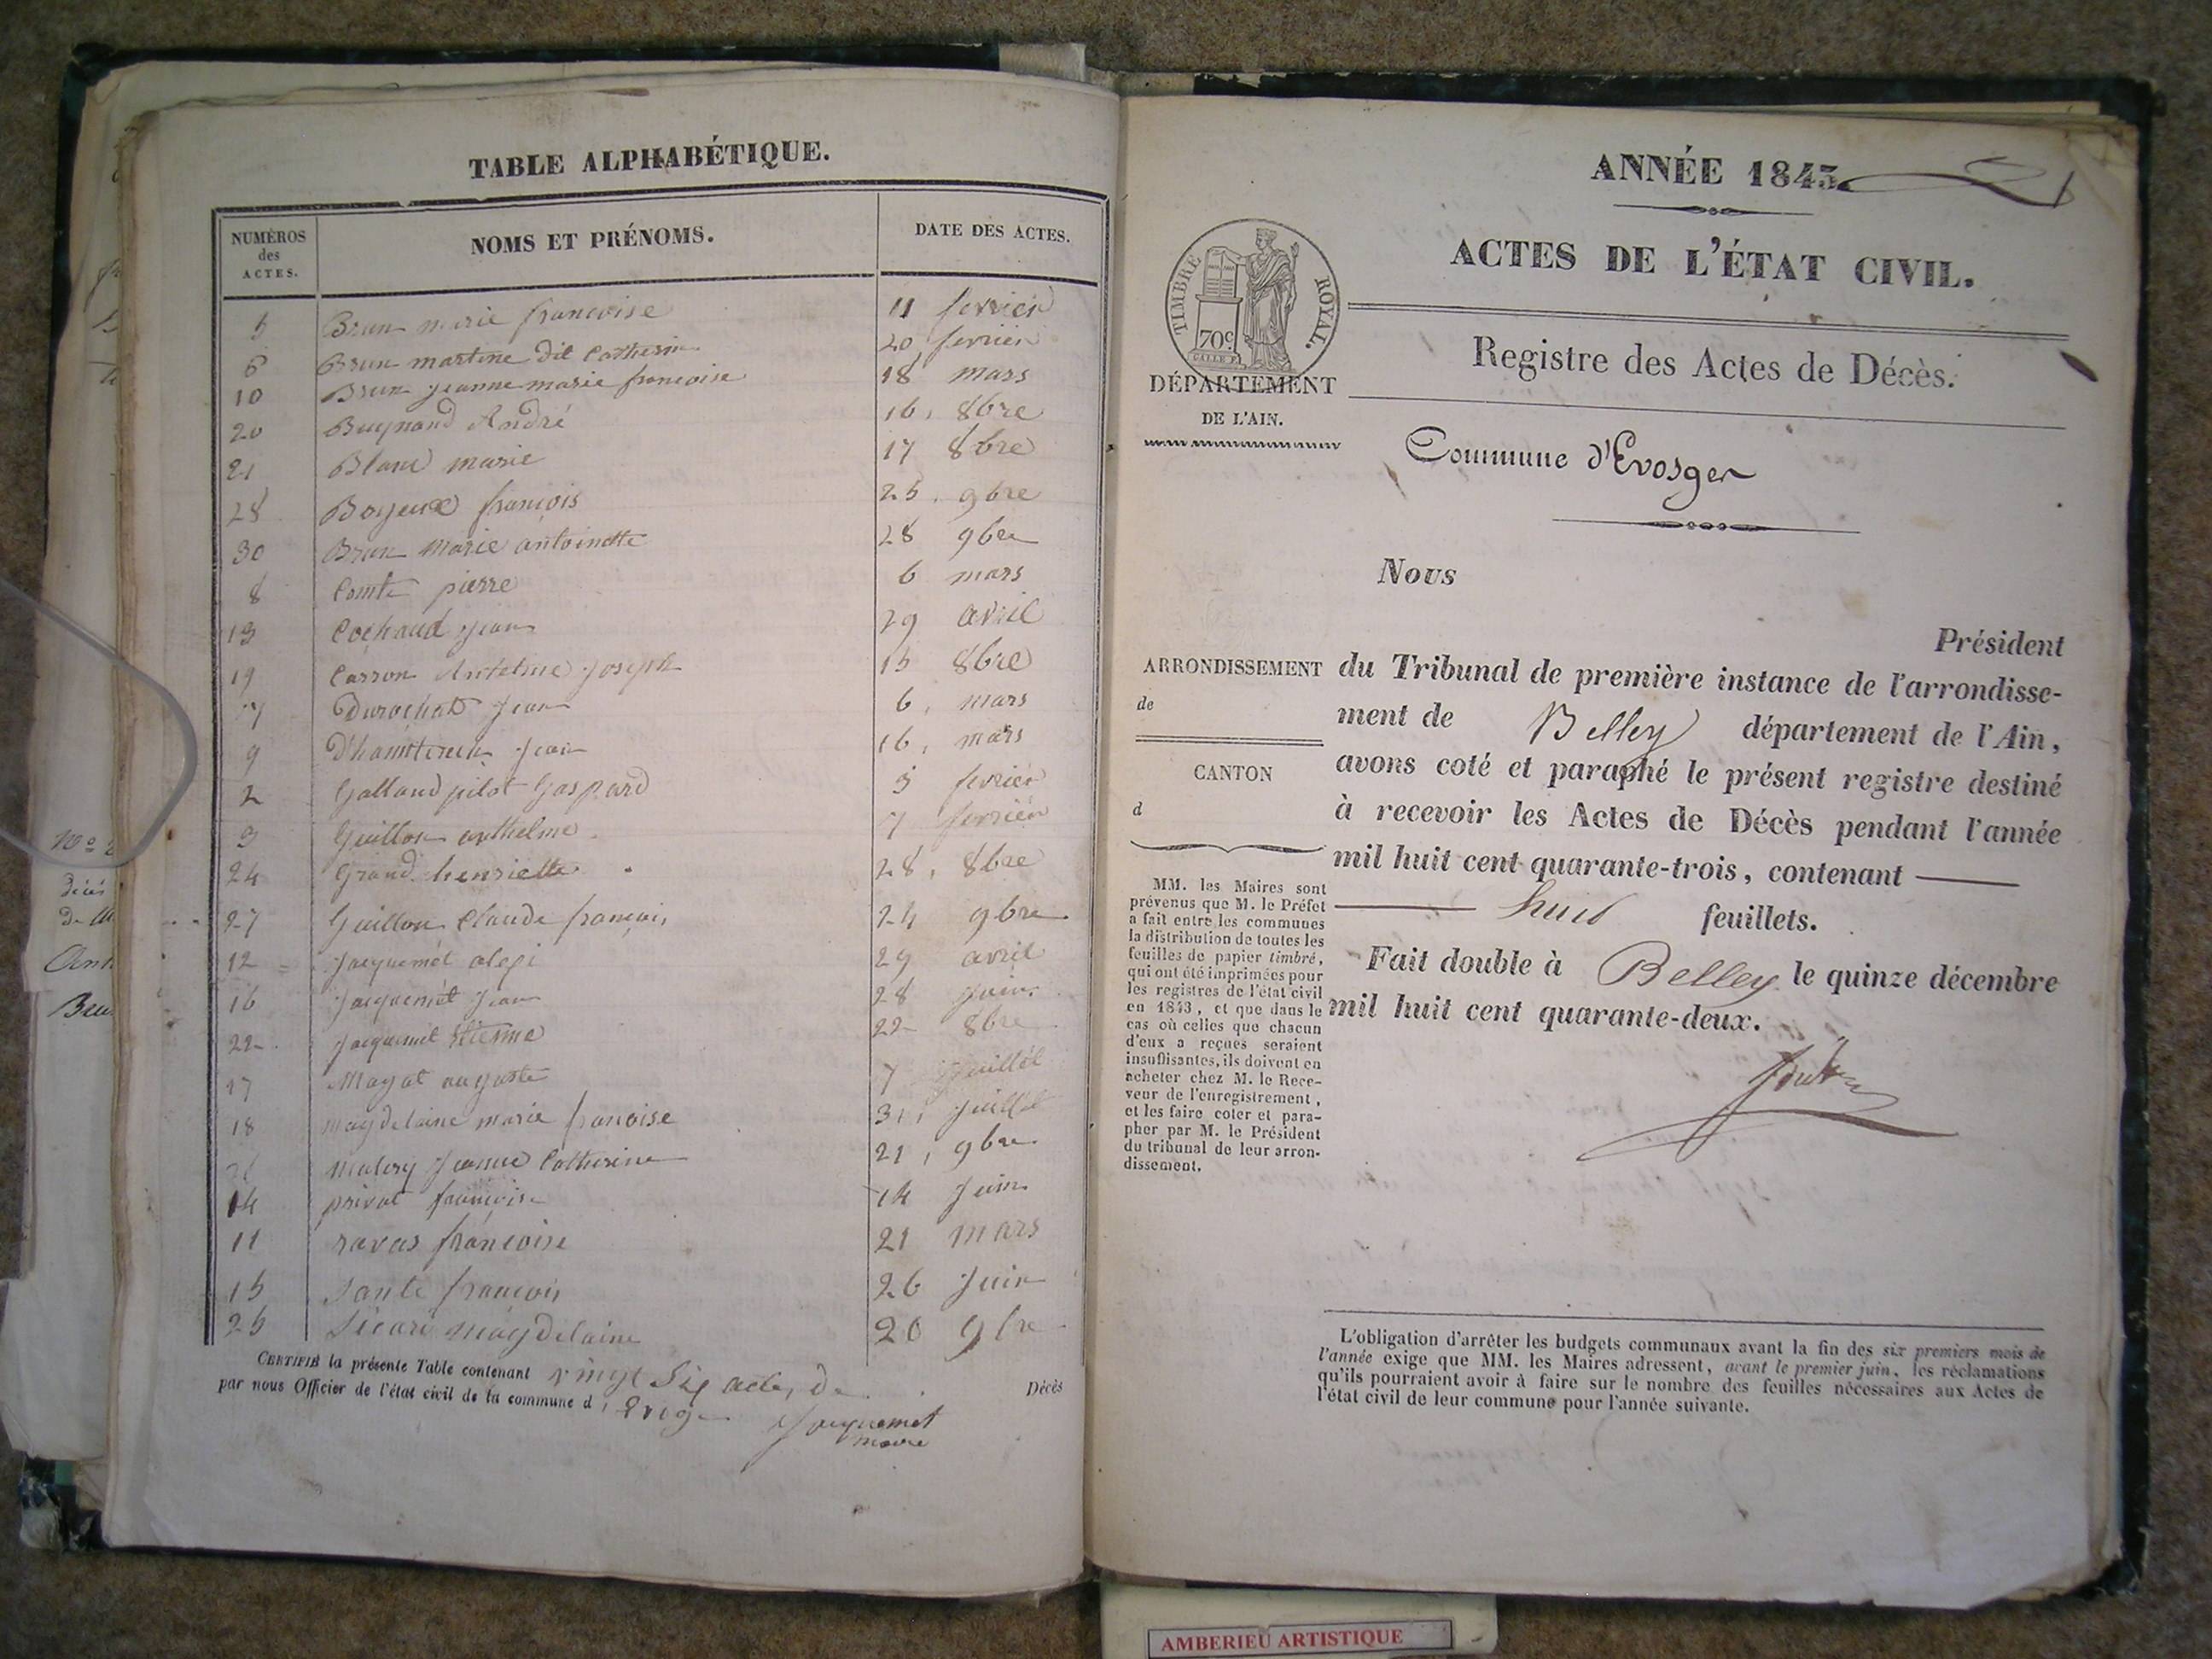 TABLE ALPHABÉTIQUE.
NUMÉROS des ACTES.
NOMS ET PRÉNOMS.
DATE DES ACTES.
5 Brun marie françoise 11 fevrier
6 Brun martine dit Catherin 20 fevrier
10 Brun jeanne marie françoise 18 mars
20 Buynand André 16, 8bre
21 Blanc marie 17 8bre
28 Boyeux françois 25. 9bre
30 Brun Marie antoinette 28 9bre
8 Comte pierre 6 mars
13 Cochaud jean 29 avril
19 Carron Antelme joseph 15 8bre
7 Durochat jean 6, mars
9 jean 16, mars
2 Galland pilot Gaspard 3 fevrier
3 Guillon anthelme 7 fevrier
24 Grand henriette 28, 8bre
27 Guillon Claude françois 24 9bre
12 Jacquemet alexi 29 avril
16 Jacquemet jean 28 juin
22 Jacquemet Etienne 22 8bre
17 Magat auguste 7 juillet
18 magdelaine marie francoise 31, juillet
jeanne Catherine 21, 9bre
14 privat françoise 14 juin
11 ravas françoise 21 mars
15 Sante françois 26 Juin
25 Sicard magdelaine 20 9bre
CERTIFIÉ la présente Table contenant vingt Six actes de Décès
par nous Officier de l'état civil de la commune d'Evoge
Jacquemet
maire
No 2
Décès
ANNÉE 1843.
1
ACTES DE L'ÉTAT CIVIL.
TIMBRE ROYAL.
70c.
Registre des Actes de Décès.
DÉPARTEMENT
DE L'AIN.
Commune d'Evosges
Nous
Président
ARRONDISSEMENT
de
CANTON
d
du Tribunal de première instance de l'arrondisse-
ment de Belley département de l'Ain,
avons coté et paraphé le présent registre destiné
à recevoir les Actes de Décès pendant l'année
mil huit cent quarante-trois, contenant
huit feuillets.
Fait double à Belley le quinze décembre
mil huit cent quarante-deux.
MM. les Maires sont
prévenus que M. le Préfet
a fait entre les communes
la distribution de toutes les
feuilles de papier timbré,
qui ont été imprimées pour
les registres de l'état civil
en 1843, et que dans le
cas où celles que chacun
d'eux a reçues seraient
insuffisantes, ils doivent en
acheter chez M. le Rece-
veur de l'enregistrement,
et les faire coter et para-
pher par M. le Président
du tribunal de leur arron-
dissement.
L'obligation d'arrêter les budgets communaux avant la fin des six premiers mois de
l'année exige que MM. les Maires adressent, avant le premier juin, les réclamations
qu'ils pourraient avoir à faire sur le nombre des feuilles nécessaires aux Actes de
l'état civil de leur commune pour l'année suivante.
AMBERIEU ARTISTIQUE